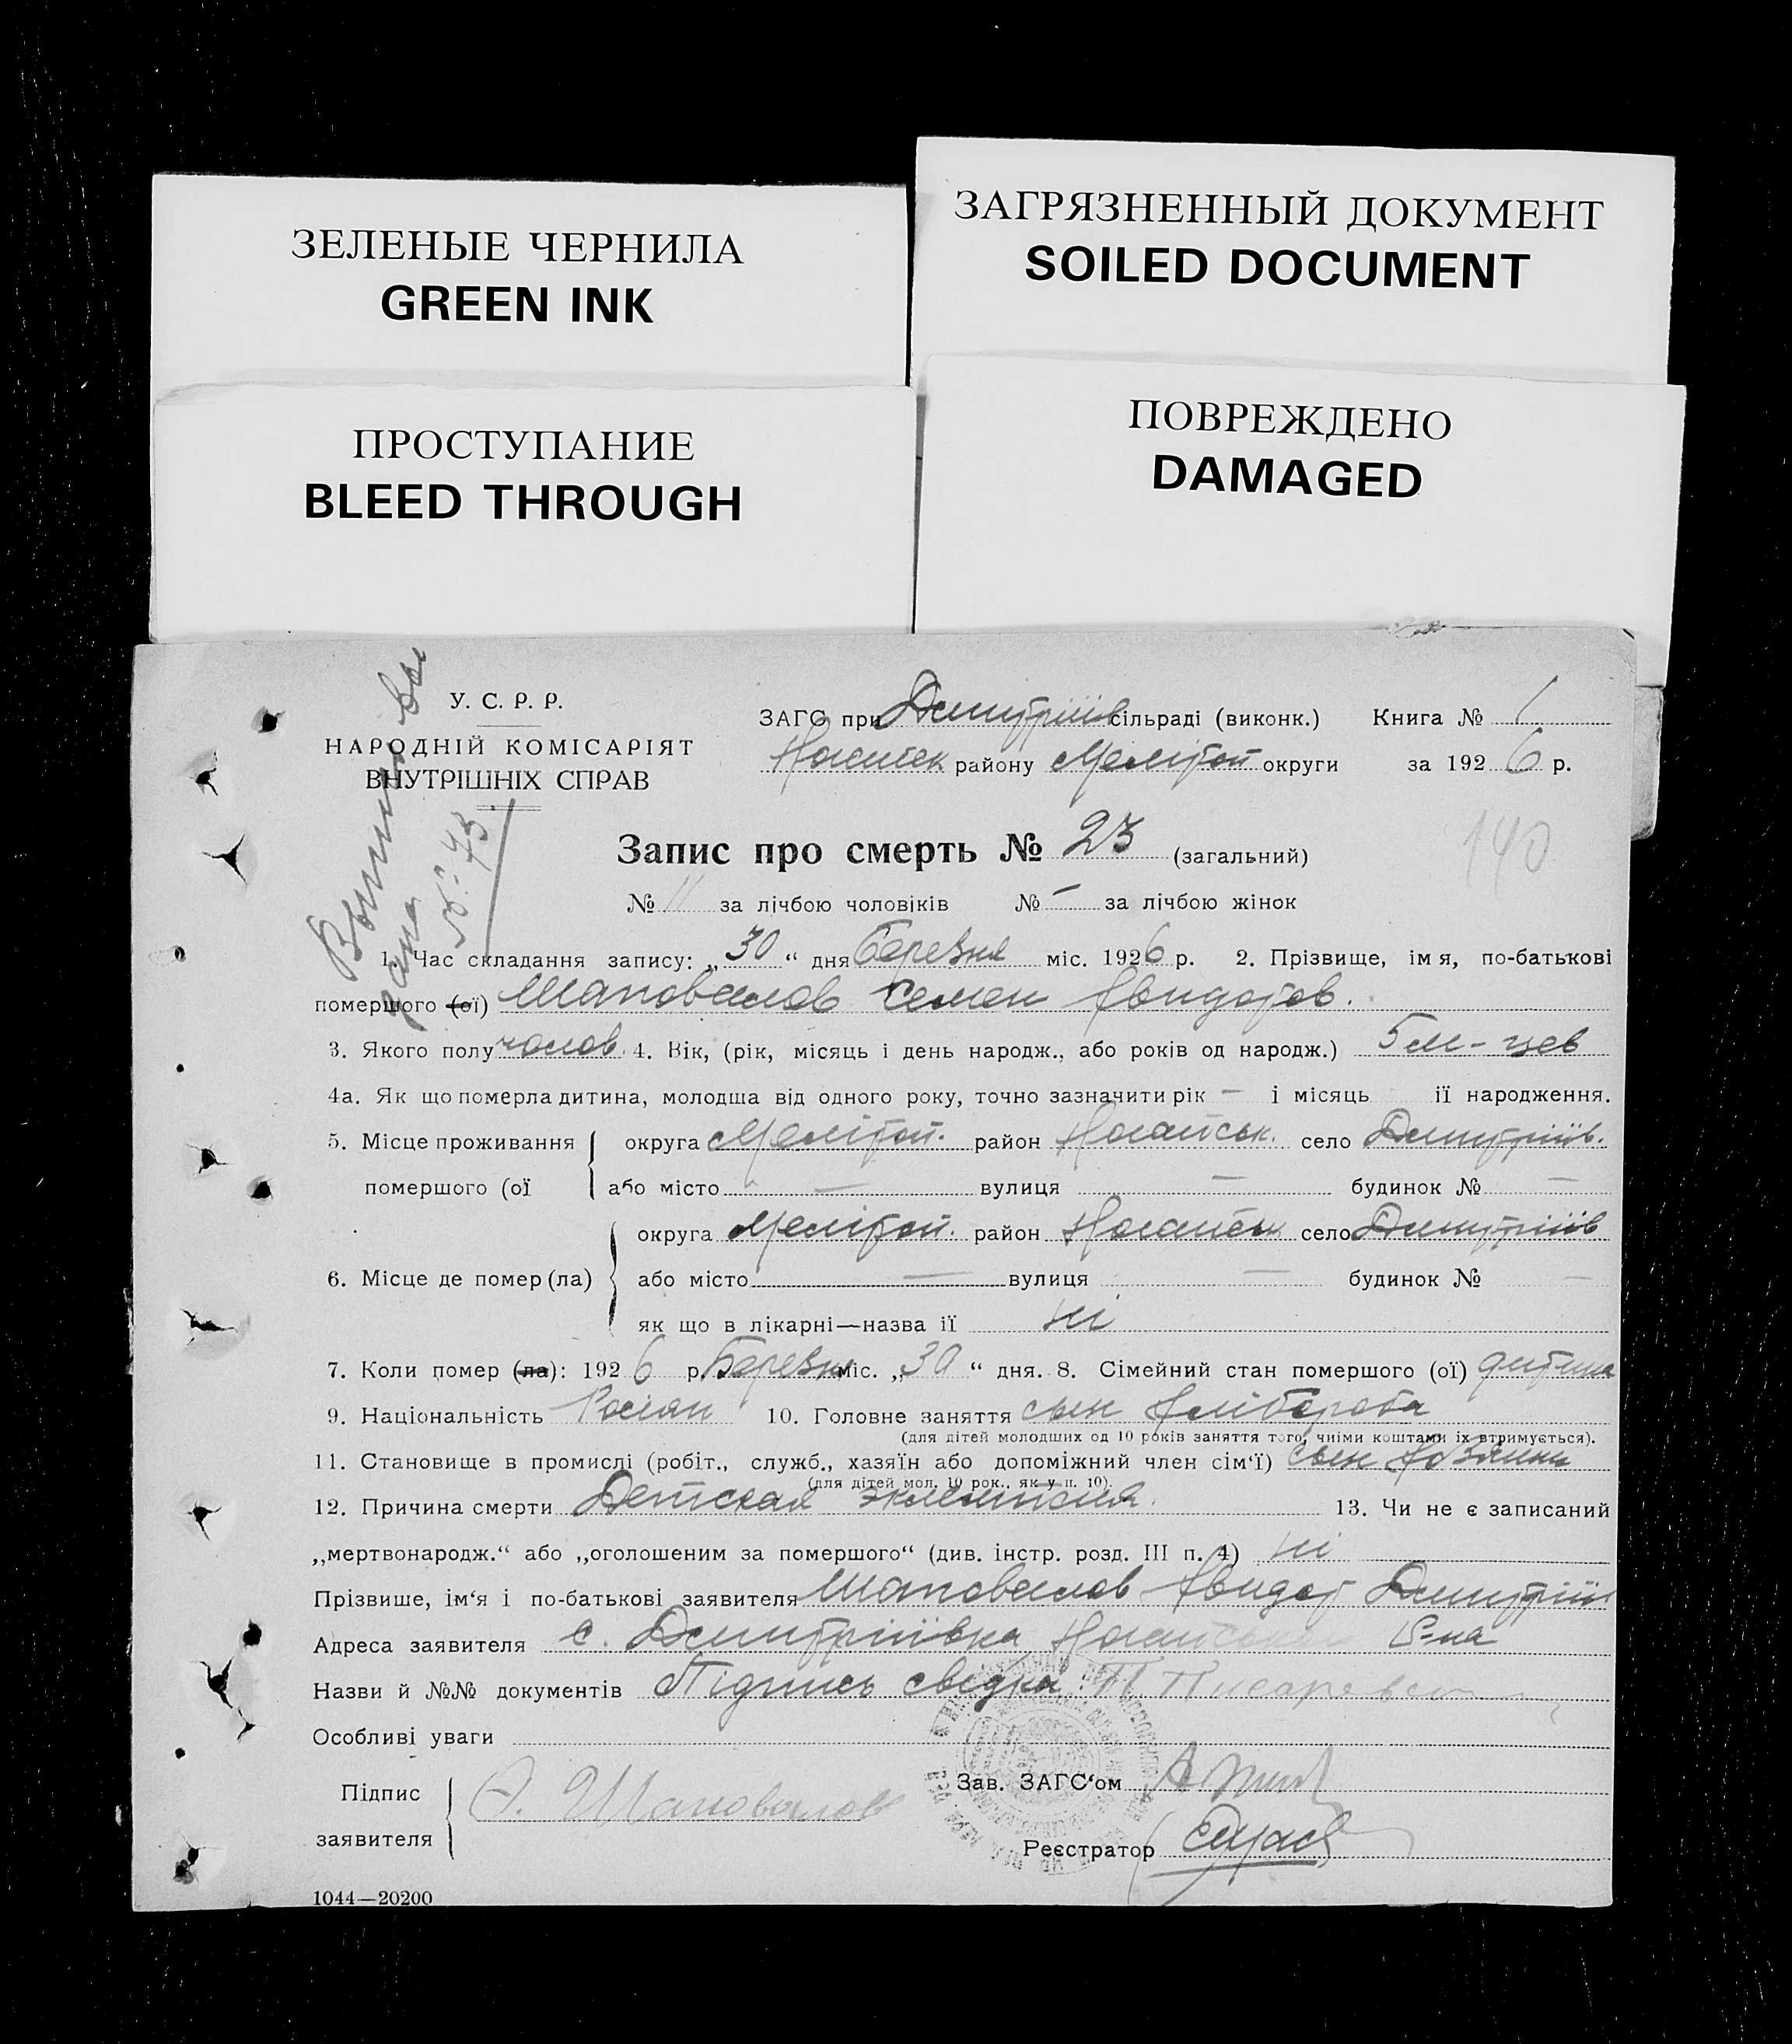 ЗЕЛЕНЫЕ ЧЕРНИЛА
GREEN INK
ЗАГРЯЗНЕННЫЙ ДОКУМЕНТ
SOILED DOCUMENT
ПРОСТУПАНИЕ
BLEED THROUGH
ПОВРЕЖДЕНО
DAMAGED
У. С. Р. Р.
НАРОДНІЙ КОМІСАРІЯТ
ВНУТРІШНІХ СПРАВ
№ 43
ЗАГС при Дмитріїв сільраді (виконк.) Книга № 1
району Мелітоп округи за 1926 р.
140
Запис про смерть № 23 (загальний)
№ 11 за лічбою чоловіків № — за лічбою жінок
1. Час складання запису: „30“ дня Березня міс. 1926 р. 2. Прізвище, імя, по-батькові
помершого (ої) Шаповалов Семен Авидотов.
3. Якого полу чолов. 4. Вік, (рік, місяць і день народж., або років од народж.) 5 м-цев
4а. Як що померла дитина, молодша від одного року, точно зазначити рік — і місяць її народження.
5. Місце проживання округа Мелітоп. район Ногайськ. село Дмитріїв.
помершого (ої або місто — вулиця — будинок № —
округа Мелітоп. район Ногайськ село Дмитріїв
6. Місце де помер (ла) або місто — вулиця — будинок № —
як що в лікарні—назва її ні
7. Коли помер (ла): 1926 р. Березня міс. „30“ дня. 8. Сімейний стан помершого (ої) дитина
9. Національність Росіян 10. Головне заняття сын Хлібороба
(для дітей молодших од 10 років заняття того, чиїми коштами їх втримується).
11. Становище в промислі (робіт., служб., хазяїн або допоміжний член сім‘ї) сын
(для дітей мол. 10 рок., як у п. 10).
12. Причина смерти Детская эклампсия. 13. Чи не є записаний
„мертвонародж.“ або „оголошеним за помершого“ (див. інстр. розд. III п. 4) ні
Прізвише, ім‘я і по-батькові заявителя Шаповалов Авидот Дмитрій
Адреса заявителя с. Дмитріївка Ногайського Р-на
Назви й №№ документів Підпись свідка П Писаревс
Особливі уваги
Підпис
заявителя А. Шаповалов
Зав. ЗАГС‘ом
Реєстратор
1044—20200